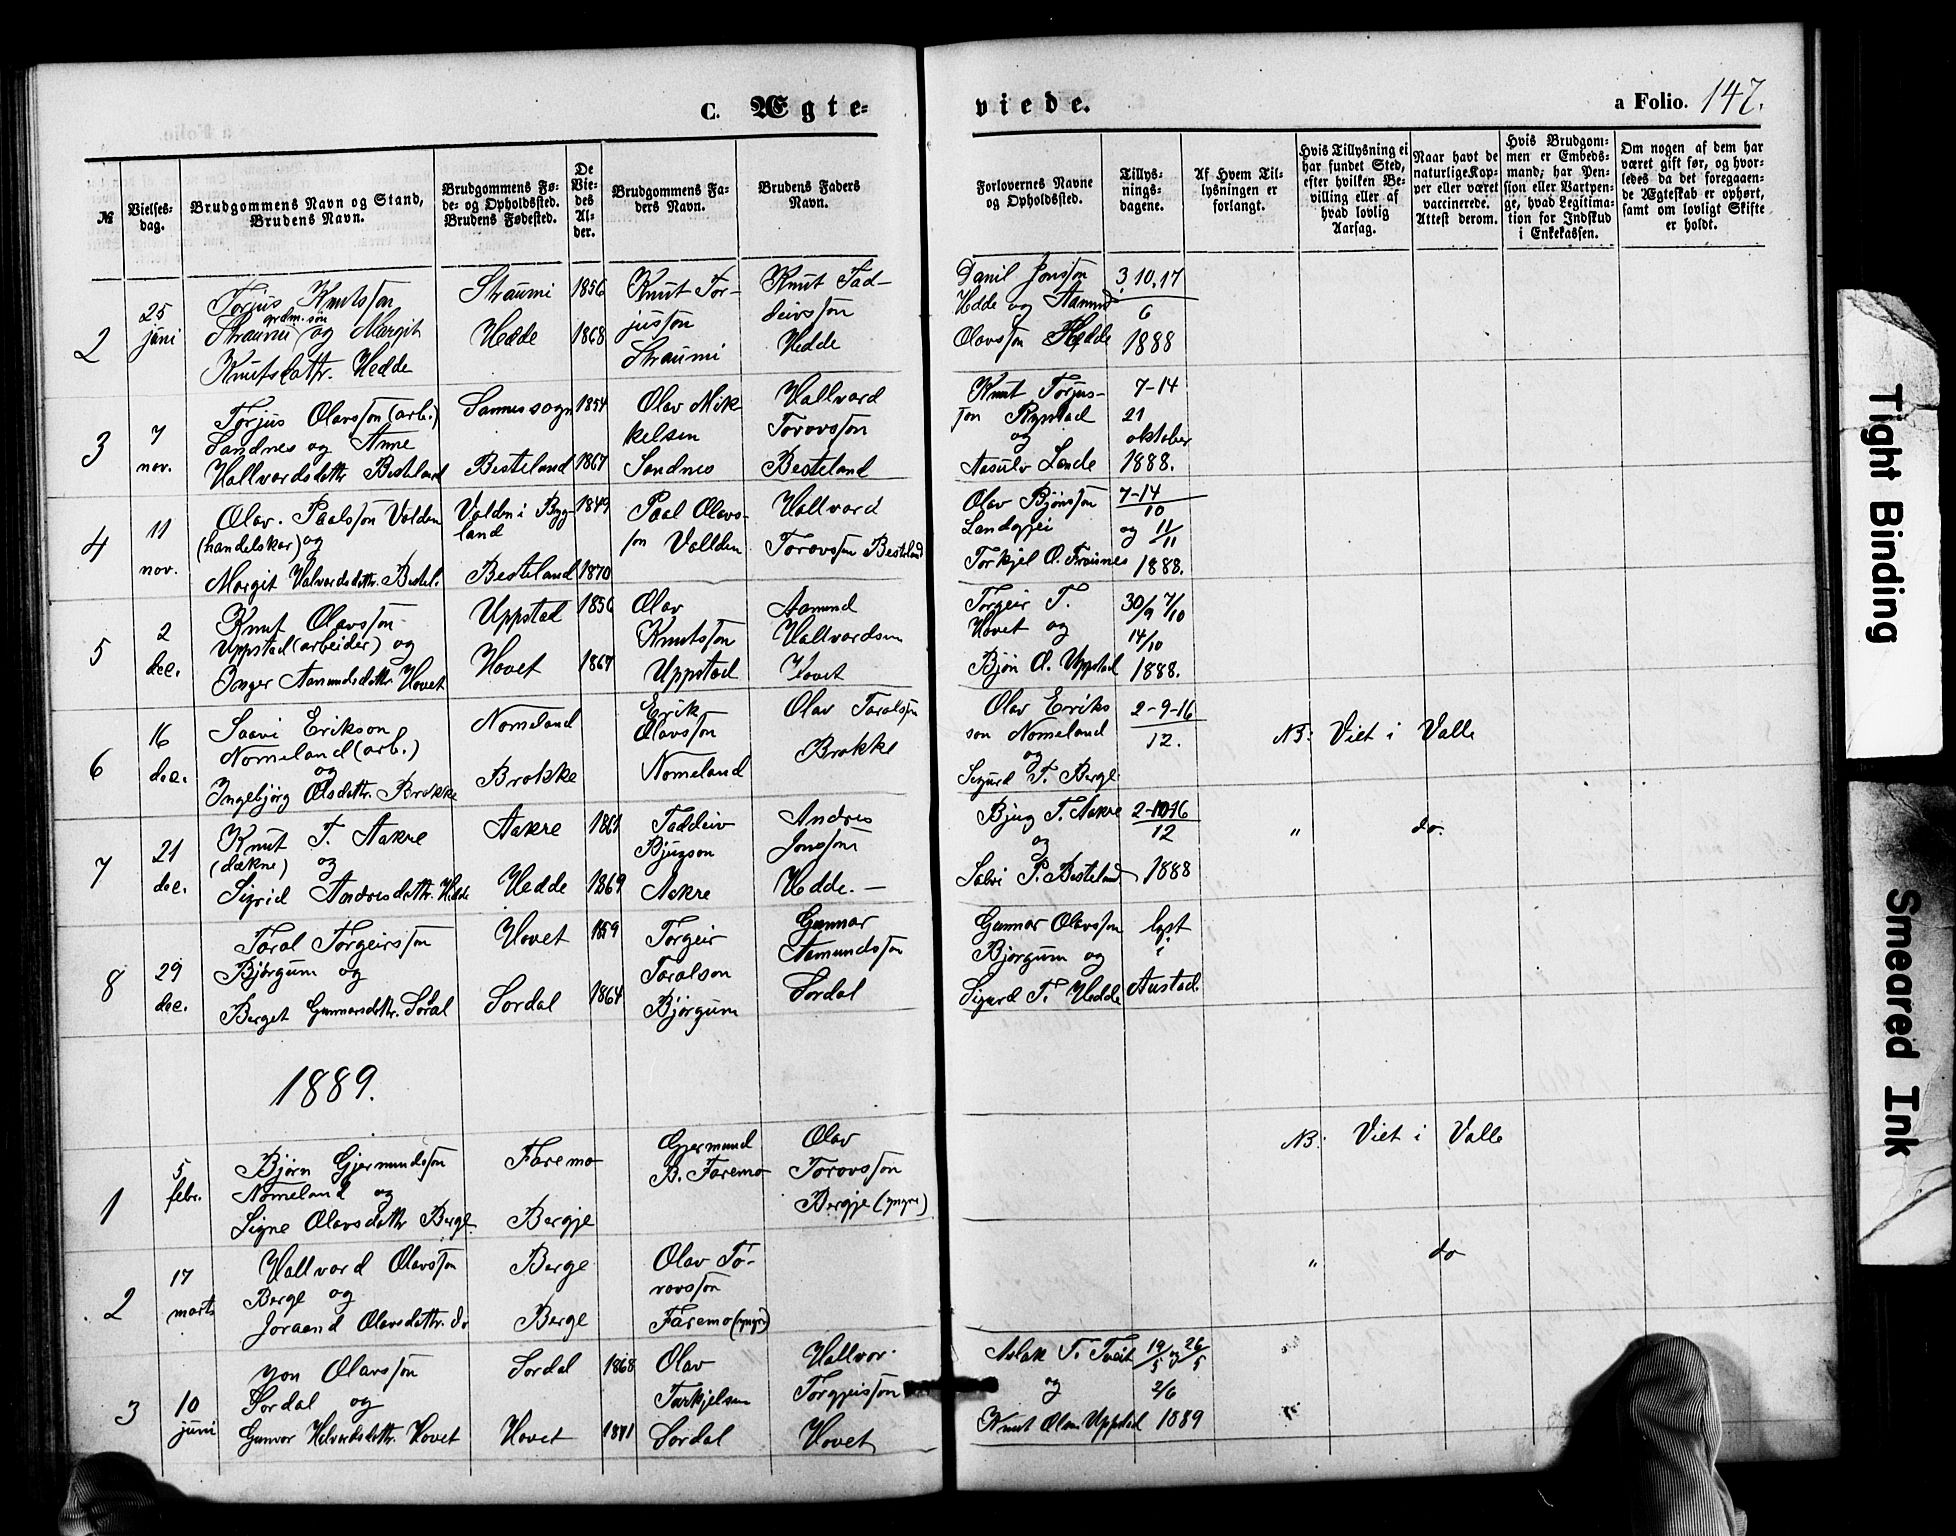 C. Ægte-
viede.
a Folio. 147.
№
Vielses-
dag.
Brudgommens Navn og Stand,
Brudens Navn.
Brudgommens Fø-
de- og Opholdssted.
Brudens Fødested.
De
Vie-
des
Al-
der.
Brudgommens Fa-
ders Navn.
Brudens Faders
Navn.
Forlovernes Navne
og Opholdssted.
Tillys-
nings-
dagene.
Af Hvem Til-
lysningen er
forlangt.
Hvis Tillysning ei
har fundet Sted,
efter hvilken Be-
villing eller af
hvad lovlig
Aarsag.
Naar havt de
naturlige Kop-
per eller været
vaccinerede.
Attest derom.
Hvis Brudgom-
men er Embeds-
mand; har Pen-
sion eller Vartpen-
ge, hvad Legitima-
tion for Indskud
i Enkekassen.
Om nogen af dem har
været gift før, og hvor-
ledes da det foregaaen-
de Ægteskab er ophørt,
samt om lovligt Skifte
er holdt.
2
25
juni
Torjus Knutsson
grdm. søn
Straumi og Margit
Knutsdattr. Hedde
Straumi
Hedde
1856
1868
Knut Tor-
jusson
Straumi
Knut Tad-
deivsson
Hedde
Danil Jonsson
Hedde og Aamund
Olavsson Hedde
3, 10, 17
6
1888
3
7
nov.
Torjus Olavsson (arb.)
Sandnes og Anne
Hallvardsdattr Besteland
Sannes sogn
Besteland
1854
1867
Olav Mik-
kelsen
Sandnes
Hallvard
Torovsson
Besteland
Knut Torjus-
son Rysstad
og
Aasulv Lande
7-14
21
oktober
1888.
4
11
nov.
Olav. Paalsson Valden
(handelskar) og
Margit Halvardsdattr. Bestel.
Valden i Byg-
land
Besteland
1849
1870
Paal Olavs-
son Vallden
Hallvard
Torovsson Besteland
Olav Bjønsson
Landogjei
Torkjel O. Frøisnes
7-14
10
og 11/11
1888.
5
2
dec.
Knut Olavsson
Uppstad (arbeider) og
Inger Aamundsdattr Hovet
Uppstad
Hovet
1856
1867
Olav
Knutsson
Uppstad
Aamund
Hallvardsen
Hovet
Torgeir T.
Hovet og
Bjøn O. Uppstad
30/9 7/10
14/10
1888.
6
16
dec.
Saavi Erikson
Nomeland (arb.)
og
Ingebjørg Olsdattr. Brokke
Nomeland
Brokke
Erik
Olavsson
Nomeland
Olav Taralsson
Brokke
Olav Eriks
son Nomeland
og
Sigurd T. Berge
2-9-16
12.
NB: Viet i Valle
7
21
dec.
Knut T. Aakre
(dækne) og
Sigrid Andresdattr. Hedde
Aakre
Hedde
1861
1869
Taddeiv
Bjugson
Aakre
Andres
Jonsson
Hedde. —
Bjug T. Aakre
og
Salvi P. Besteland
2-10-16
12
1888
" do.
8
29
dec.
Taral Torgeirsson
Bjørgum og
Berget Gunnarsdattr. Sordal
Hovet
Sordal
1859
1864
Torgeir
Taralson
Bjørgum
Gunnar
Aamundsson
Sordal
Gunnar Olavsson
Bjørgum og
Sigurd T. Hedde
lyst
i
Austad.
1889.
1
5
febr.
Bjørn Gjermundsson
Nomeland og
Signe Olavsdattr Berge
Faremo
Bergje
Gjermund
B. Faremo
Olav
Torovsson
Bergje (yngre)
NB: Viet i Valle
2
17
marts
Hallvard Olavsson
Berge og
Joraand Olavsdattr. do
Berge
Berge
Olav To-
rovsson
Faremo (yngre)
" do
3
10
juni
Jon Olavsson
Sordal og
Gunvor Halvardsdattr. Hovet
Sordal
Hovet
1868
1871
Olav
Tarkjelsen
Sordal
Hallvor
Torgjeisson
Hovet
Aslak T. Tveit
og
Knut Olavs. Uppstad
19/5 og 26/5
2/6
1889
Tight Binding
Smeared Ink